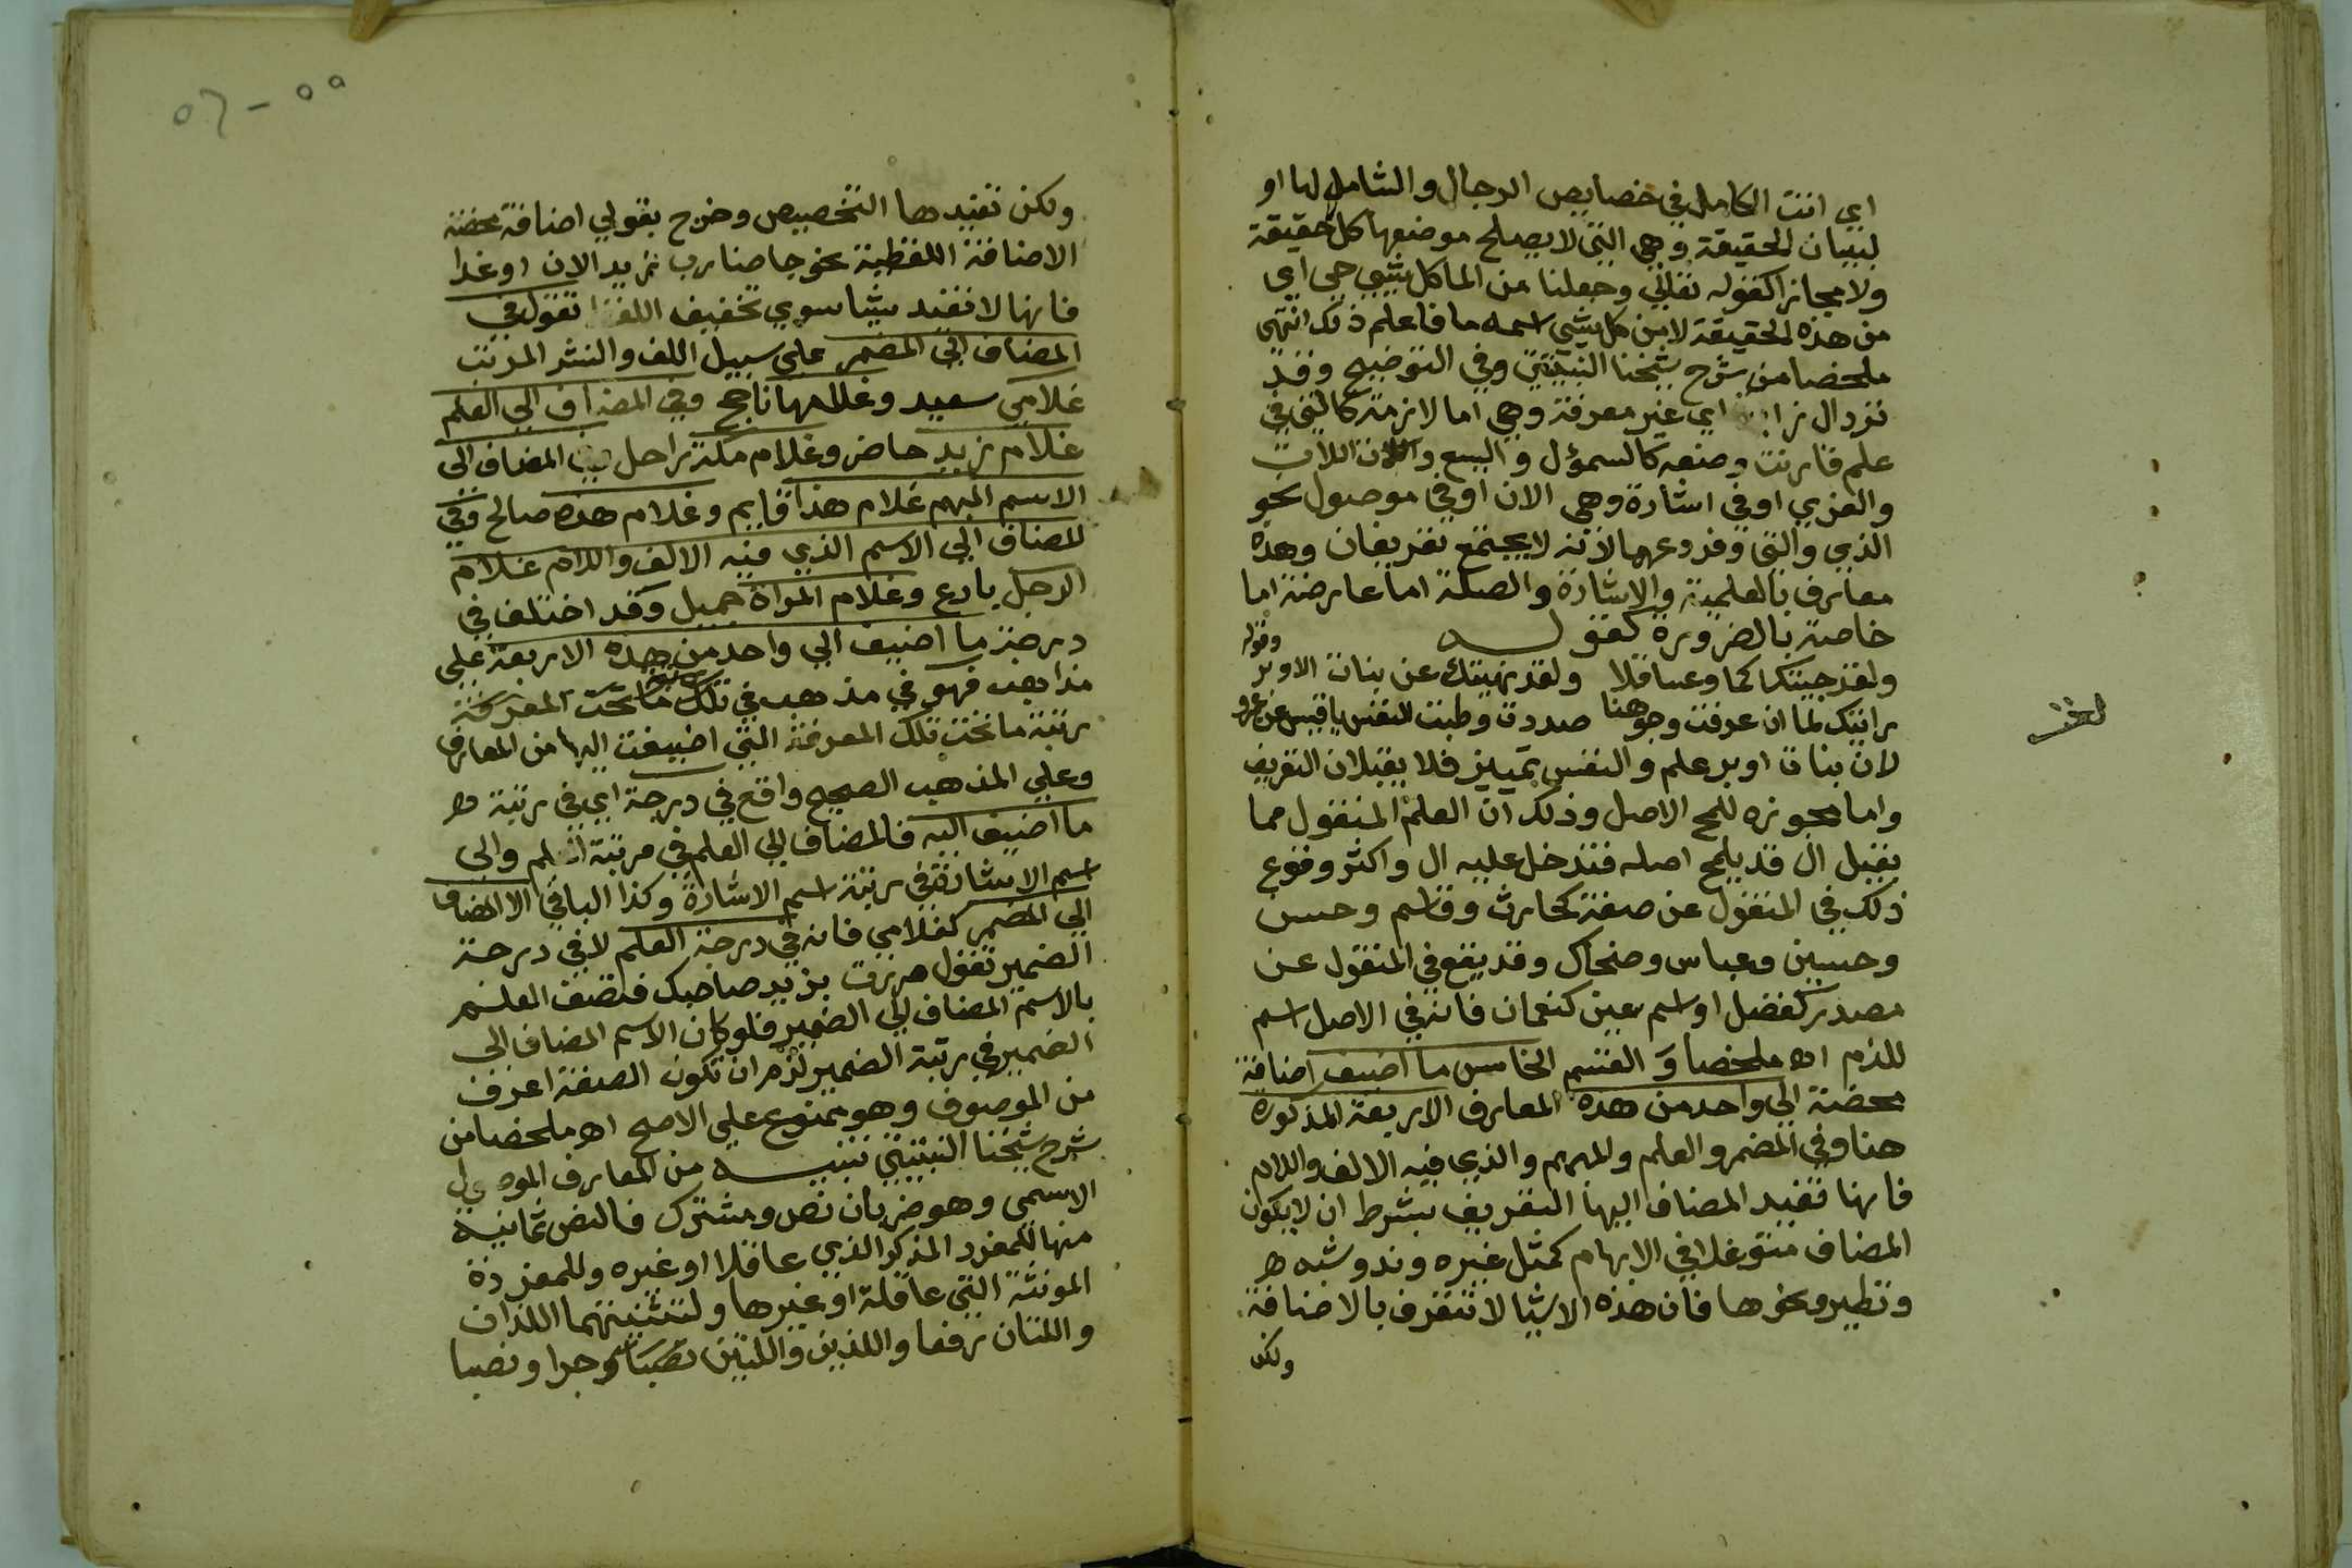 اي انت الكامل في خصايص الرجال والشامل لها او
لبيان الحقيقة وهي التي لا يصلح موضعها كل حقيقة
ولا مجازا كقوله تعالي وجعلنا من الما كل شيي حي اي
من هذه الحقيقة لا من كل شيي اسمه ما فاعلم ذلك انتهى
ملخصا من شرح شيخنا النبتيتي وفي التوضيح وقد
تزد ال اي غير معرفة وهي اما لازمة كالتي في
علم قارنت وضعه كالسموؤل واليسع واللات
والعزي او في اشارة وهي الان او في موصول نحو
الذي والتي وفروعهما لانه لا يجتمع تعريفان وهذه
معارف بالعلمية والاشارة والصلة اما عارضة اما
خاصة بالضرورة كقوله
ولقد جنيتك اكما وعساقلا ولقد نهيتك عن بنات الاوبر وقوله
رايتك لما ان عرفت وجوهنا صددت وطبت النفس يا قيس عن عمرو
لان بنات اوبر علم والنفس تمييز فلا يقبلان التعريف
واما مجوزه للمح الاصل وذلك ان العلم المنقول مما
يقبل ال قد يلمح اصله فتدخل عليه ال واكثر وقوع
ذلك في المنقول عن صفة كحارث وقاسم وحسن
وحسين وعباس وضحاك وقد يقع في المنقول عن
مصدر كفضل او اسم عين كنعمان فانه في الاصل اسم
للدم اه ملخصا و القسم الخامس ما اضيف اضافة
محضة الي واحد من هذه المعارف الاربعة المذكورة
هنا وفي المضمر والعلم والمبهم والذي فيه الالف واللام
فانها تفيد المضاف اليها التعريف بشرط ان لا يكون
المضاف متوغلا في الابهام كمثل غيره وند وشبه
ونظير ونحوها فان هذه الاشيا لا تتعرف بالاضافة
ولكن
٥٥ - ٥٦
ولكن تفيدها التخصيص وخرج بقولي اضافة محضة
الاضافة اللفظية نحو جا ضارب زيد الان او غدا
فانها لا تفيد شيا سوي تخفيف اللفظ تقول في
المضاف الي المضمر علي سبيل اللف والنشر المرتب
غلامي سعيد وغلامها ناجح وفي المضاف الي العلم
غلام زيد حاضر وغلام مكة راحل المضاف الى
الاسم المبهم غلام هذا قايم وغلام هذه صالح وفي
المضاف الي الاسم الذي فيه الالف واللام غلام
الرجل بارع وغلام المراة جميل وقد اختلف في
درجة ما اضيف الي واحد من هذه الاربعة علي
مذاهب فهو في مذهب في تلك ما تحت المعرفة
رتبة ما تحت تلك المعرفة التي اضيفت اليها من المعارف
وعلي المذهب الصحيح واقع في درجة اي في رتبة
ما اضيف اليه فالمضاف الي العلم في مرتبة العلم والى
اسم الاشارة في رتبة اسم الاشارة وكذا الباقي الا المضاف
الي المضمر كغلامي فانه في درجة العلم لا في درجة
الضمير تقول مررت بزيد صاحبك فتصف العلم
بالاسم المضاف الي الضمير فلو كان الاسم المضاف الى
الضمير في رتبة الضمير لزم ان تكون الصفة اعرف
من الموصوف وهو ممنوع علي الاصح اه ملخصا من
شرح شيخنا النبتيتي تنبيه من المعارف الموصول
الاسمي وهو ضربان نص ومشترك فالنص ثمانية
منها للمفرد المذكر الذي عاقلا او غيره وللمفردة
المونثة التي عاقلة او غيرها ولتثنيتهما اللذان
واللتان رفعا واللذين واللتين وجرا ونصبا